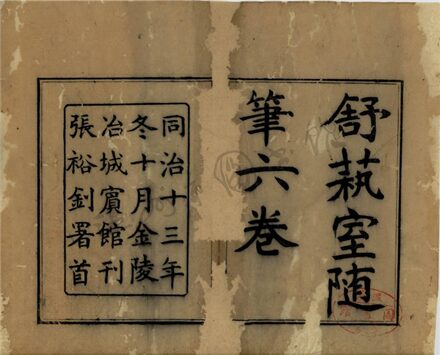 舒蓺室随
筆六卷
同治十三年
冬十月金陵
冶城賓館刊
張裕釗署首